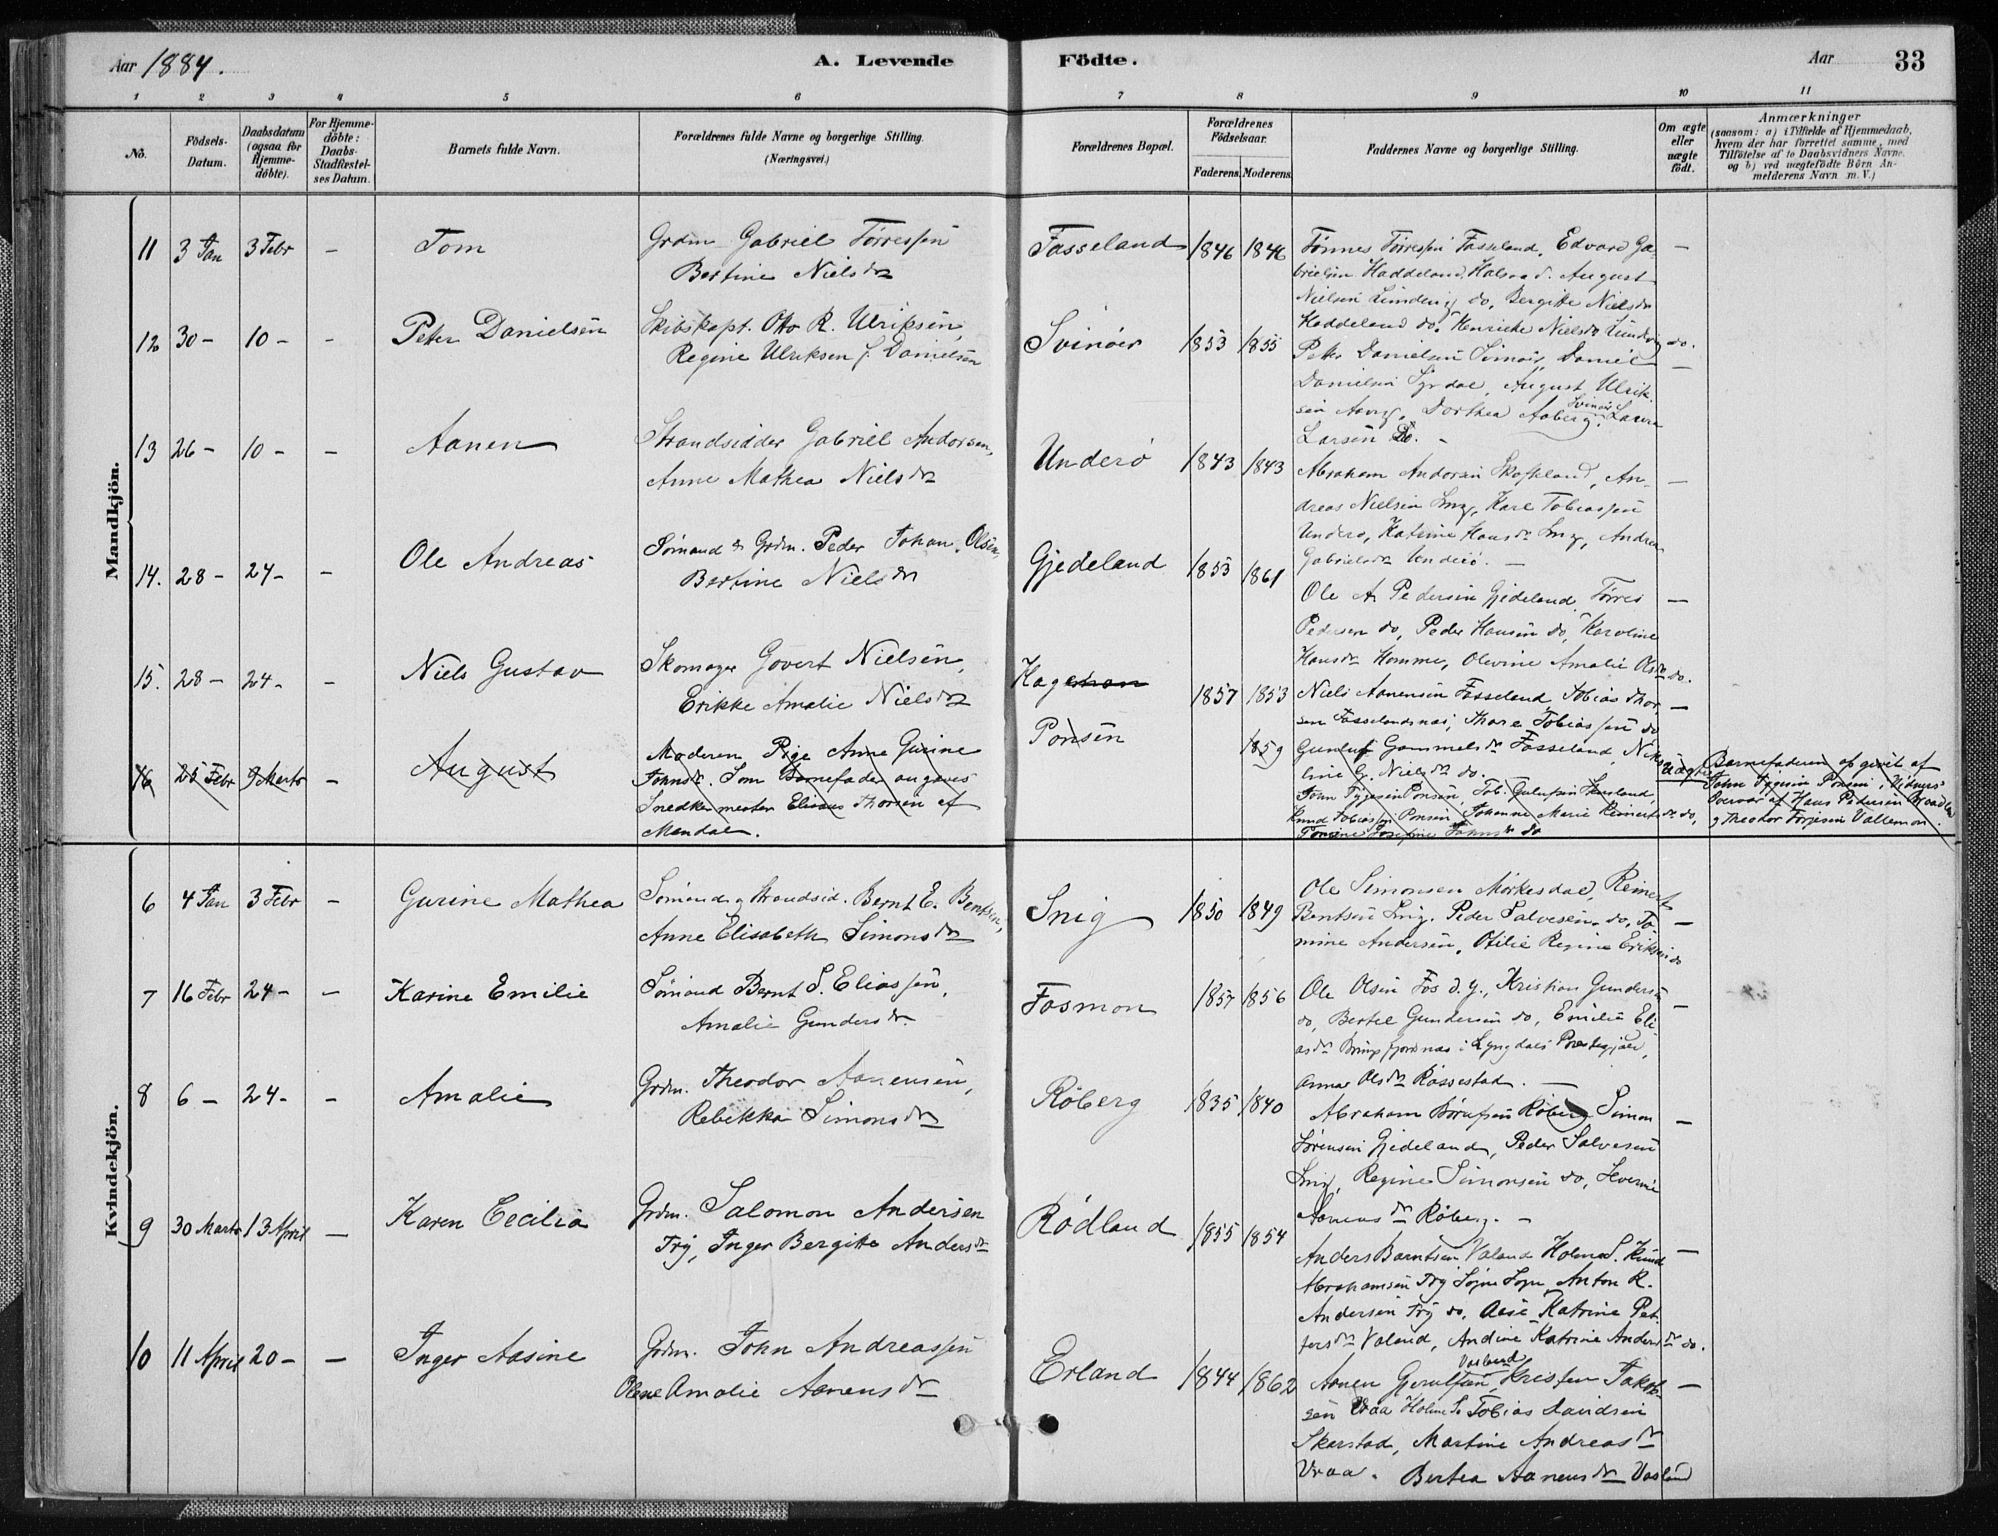 Aar 1884.
A. Levende
Födte.
Aar
33
1 2 3 4 5 6 7 8 9 10 11
No.
Födsels-
Datum.
Daabsdatum
(ogsaa for
Hjemme-
döbte).
For Hjemme-
döbte:
Daabs-
Stadfæstel-
ses Datum.
Barnets fulde Navn.
Forældrenes fulde Navne og borgerlige Stilling.
(Næringsvei.)
Forældrenes Bopæl.
Forældrenes
Födselsaar.
Faderens. Moderens.
Faddernes Navne og borgerlige Stilling.
Om ægte
eller
uægte
födt.
Anmærkninger
(saasom: a) i Tilfælde af Hjemmedaab,
hvem der har forrettet samme, med
Tilföielse af to Daabsvidners Navne.
og b) ved uægtefödte Börn An-
melderens Navn m. V.)
Mandkjön.
11 3 Jan 3 Febr - Tom
Grdm. Gabriel Törressen
Bertine Nielsdr
Fasseland 1846 1846
Tönnes Törressen Fasseland, Edvard Ga-
brielsen Haddeland, Halsaa d. August
Nielsen Lunde do, Bergitte Nielsdr
Haddeland do, Henriette Nielsdr do.
12 30 - 10 - - Peter Danielsen
Skibskapt. Otto R. Ulriksen,
Regine Ulriksen f. Danielsen
Svinöer 1853 1855
Peter Danielsen Svinör, Daniel
Danielsen Syrdal, August Ulrik-
sen, Dorthea Aaberg, Svinör, Laura
Larsen do. -
13 26 - 10 - - Aanen
Strandsidder Gabriel Andersen,
Anne Mathea Nielsdr
Underö 1843 1843
Abraham Andersen Skofteland, An-
dreas Nielsen Snig, Karl Tobiassen
Underö, Katrine Hansdr Snig, Andrea
Gabrielsdr Underö. -
14. 28 - 24 - - Ole Andreas
Sömand & Grdm. Peder Johan Olsen,
Bertine Nielsdr
Gjedeland 1853 1861
Ole A. Pedersen Gjedeland, Törres
Pedersen do, Peder Hansen do, Karoline
Hansdr Homme, Olevine Amalie Olsdr do.
15. 28 - 24 - - Niels Gustav
Skomager Govert Nielsen,
Erikke Amalie Nielsdr
Kage 1857 1853
Niels Aanensen Fasseland, Tobias Thor-
sen Fasselandsnæs, Thore Tobiassen do
Gunluf Gammelsdr Fasseland, Niko-
line G. Nielsdr do.
16 25 Febr 9 Marts - August
Moderen Pige Anne Gurine
Johnsdr. Som Barnefader angaves
Snedkermester Elias Thorsen af
Mandal.
Ponsen 1859
John Tygesen Ponsen, Tob. Gulufsen Skarstad,
Knud Tobiassen Ponsen, Johanne Marie Reinertsdr do,
Tomine Josefine Johnsdr do
Uægte
Barnefaderen opgivet af
John Tygesen Ponsen, Vidner
Gunvor af Hans Pedersen
og Theodor Torjesen Vallemon.
Kvindekjön.
6 4 Jan 3 Febr - Gurine Mathea
Sömand og Strandsid. Bernt E. Bentsen,
Anne Elisabeth Simonsdr
Snig 1850 1849
Ole Simonsen Mörkesdal, Reinert
Bentsen Snig, Peder Salvesen do, To-
mine Andersen, Otilie Regine Eriksen do
7 16 Febr 24 - - Karine Emilie
Sömand Bernt S. Eliassen,
Amalie Gundersdr.
Fosmon 1857 1856
Ole Olsen Fos d. y., Kristian Gundersen
do, Bertel Gundersen do, Emilie Eli-
asdr i Lyngdals Præstegjeld,
Anna Olsdr Røssestad. -
8 6 - 24 - - Amalie
Grdm. Theodor Aanensen,
Rebekka Simonsdr
Röberg 1835 1840
Abraham Börufsen Röberg, Simon
Sörensen Gjedeland, Peder Salvesen
Snig, Regine Simonsen do, Severine
Aanensdr Röberg. -
9 30 Marts 13 April - Karen Cecilia
Grdm. Salomon Andersen
Try, Inger Bergitte Andersdr
Rödland 1855 1854
Anders Berntsen Valand Holme S. Knud
Abrahamsen Try Søgne Sogn, Anton R.
Andersen Try do, Aase Katrine Pet-
tersdr Valand, Andine Katrine Andersdr do.
10 11 April 20 - - Inger Aasine
Grdm. John Andreassen
Olene Amalie Aanensdr
Erland 1844 1862
Aanen Gjerulfsen Vasland, Kristen Jakob-
sen Vraa Holme S. Tobias Davidsen
Skarstad, Martine Andreasdr
Vraa. Bertea Aanensdr Vasland